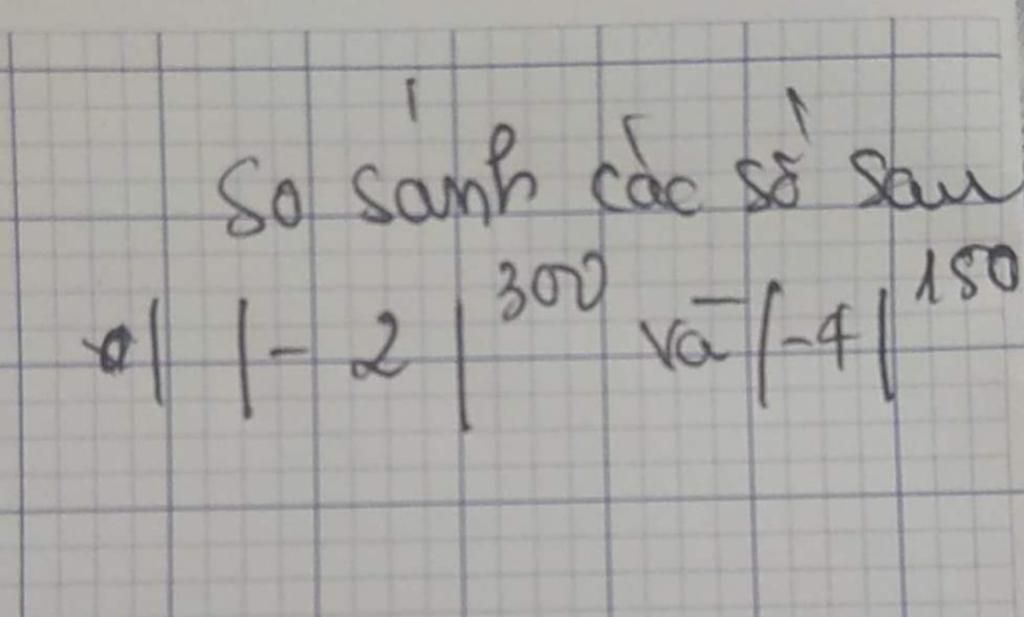 So sánh các số sau
a| |-2|^300 và |-4|^150